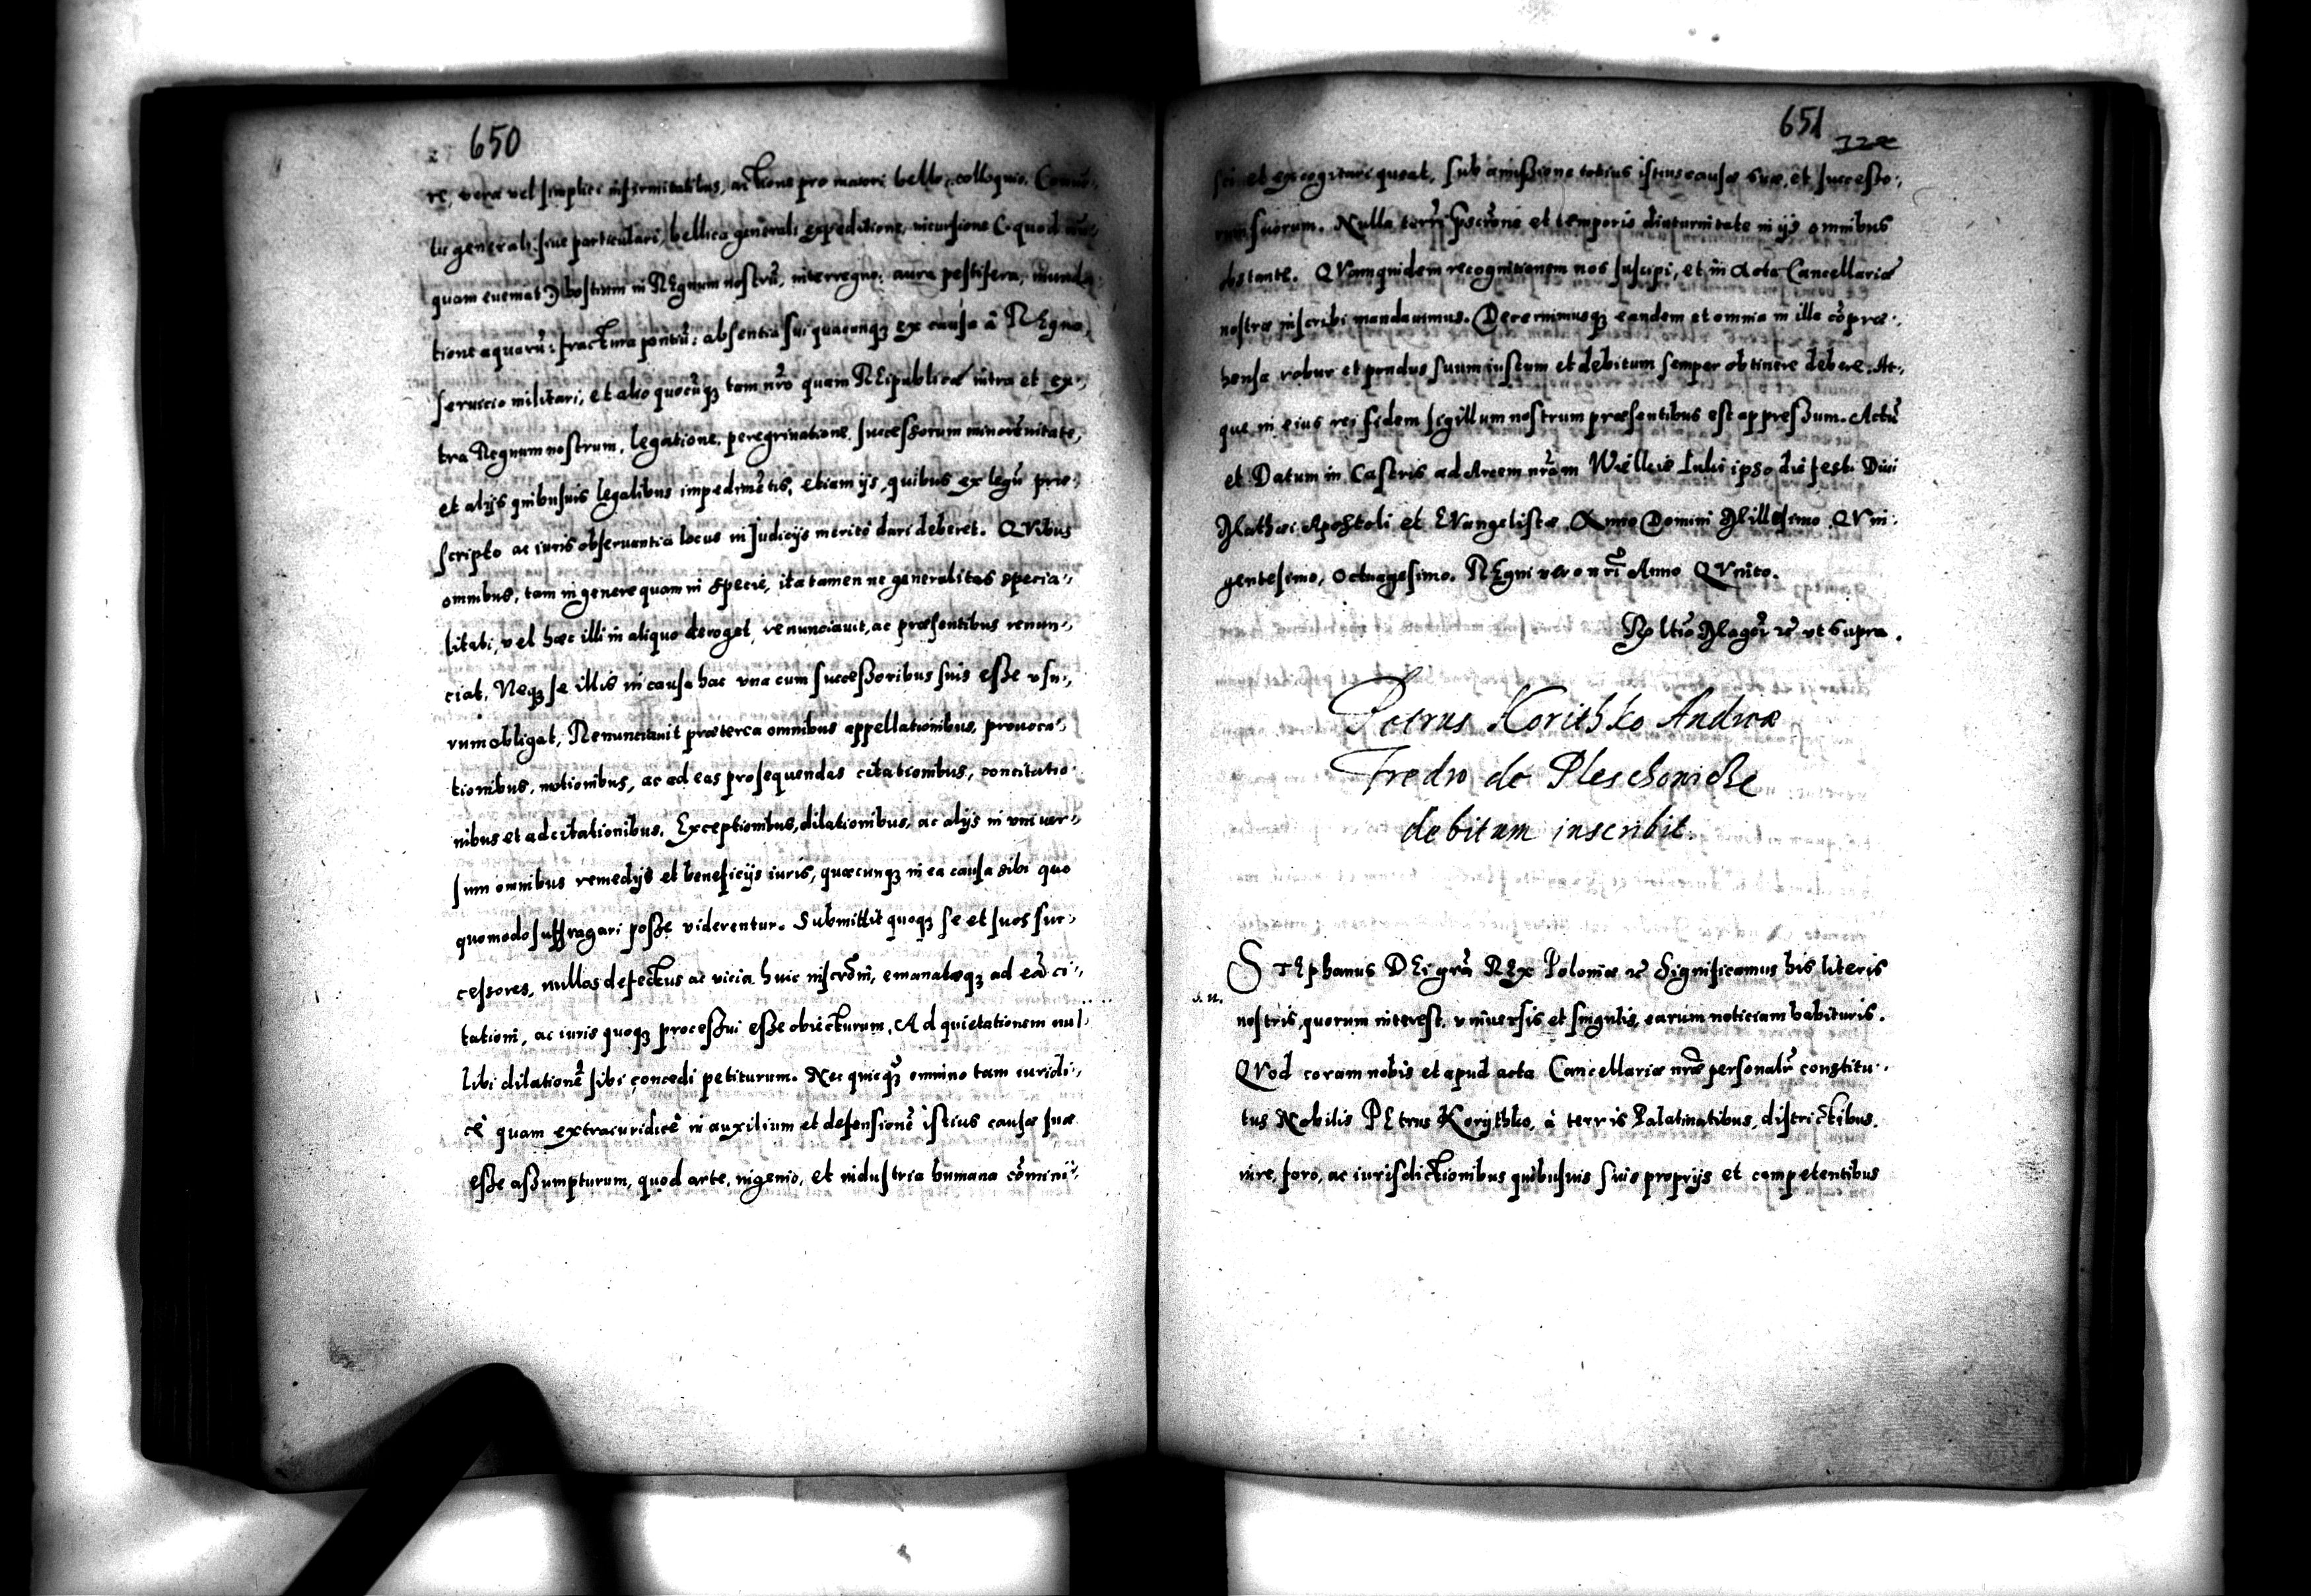 650
re, vera vel simplici infirmitatibus, actione pro maiori bello, colloquio,
tis generali siue particulari, bellica generali expeditione, incursione (quod
quam eueniat) hostium in REgnum nostrũ, interregno, aura pestifera,
tione aquarũ, fractura pontiũ, absentia sui quacunqꝫ ex causa à REgno,
seruicio militari, et alio quocũqꝫ tam nro quam REipublicæ intra et ex-,
tra Regnum nostrum, legatione, peregrinatione, successorum minorẽnitate,
et alijs quibusuis legalibus impedimẽtis, etiam ijs, quibus ex legũ prae-,
scripto ac iuris obseruantia locus in Judicijs meritò dari deberet. QVibus
omnibus, tam in genere quam in specie, ita tamen ne generalitas specia-,
litati, vel hæc illi in aliquo deroget, renunciauit, ac præsentibus renun-,
ciat, Neqꝫ se illis in causa hac vna cum successoribus suis esse vsu-,
rum obligat, Renunciauit præterea omnibus appellationibus, prouoca-,
tionibus, motionibus, ac ad eas prosequendas citationibus, concitatio-
nibus et adcitationibus. Exceptionibus, dilationibus, ac alijs in vniuer-,
sum omnibus remedijs et beneficijs iuris, quæcunqꝫ in ea causa sibi quo
quomodo suffragari posse viderentur. Submittit quoqꝫ se et suos suc-,
cessores, nullos defectus ac vicia huic inscrõni, emanatæqꝫ ad eã ci-,
tationi, ac iuris quoqꝫ processui esse obiecturum, Ad quietationem nul-
libi dilationẽ sibi concedi petiturum. Nec quicqꝫ omnino tam iuridi-,
cè quam extraiuridicè in auxilium et defensionẽ istius causæ suæ
esse assumpturum, quod arte, ingenio, et industria humana cõminì-,
651
sci et excogitari queat, sub amissione totius istius causæ suæ, et successo-,
rum suorum. Nulla terri pscrone et temporis diuturnitate in ijs omnibus
obstante. QVam quidem recognitionem nos suscipi, et in Acta Cancellariæ
nostræ inscribi mandauimus. Decernimusqꝫ eandem et omnia in illa cõpræ-,
hensa robur et pondus suum iustum et debitum semper obtinere debere. At-,
que in eius rei fidem sigillum nostrum præsentibus est appressum. Actũ
et Datum in Castris ad Arcem nram Wielkie Luki ipso die festi Diui
Mathæi Apostoli et EVangelistæ Anno Domini Millesimo QVin-
gentesimo, Octuagesimo. REgni vero nri Anno QVinto.
Rx ltio Magci rc vt supra.
Petrus Korithko Andreæ
Fredro de Pleschowicze
debitum inscribit.
STEphanus DEi gra REx Poloniæ rc Significamus his literis
nostris, quorum interest, vniuersis et singulis, earum noticiam habituris.
QVod coram nobis et apud acta Cancellariæ nræ personalr constitu-,
tus Nobilis PEtrus Korythko, à terris Palatinatibus, districtibus,
iure, foro, ac iurisdictionibus quibusuis suis proprijs et competentibus